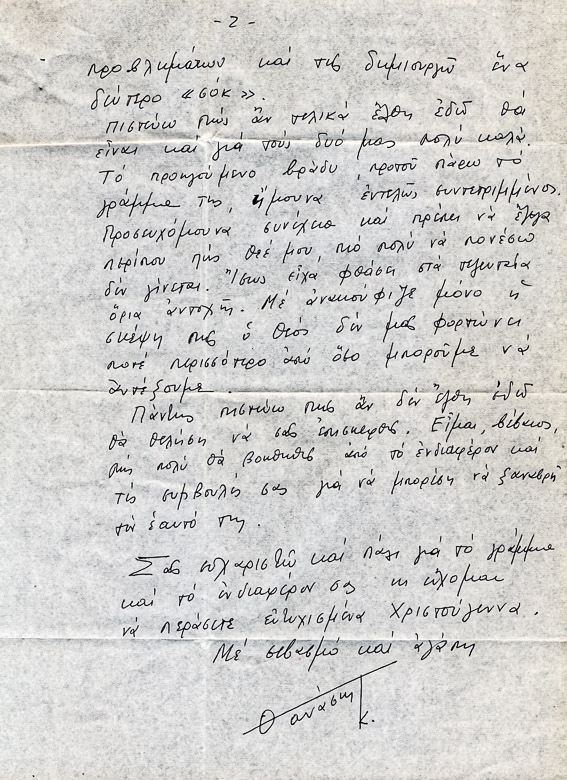 - 2 -
προβλημάτων καὶ τῆς δημιουργῶ ἕνα
δεύτερο «σόκ».
Πιστεύω πὼς ἂν τελικὰ ἔλθη ἐδῶ θὰ
εἶναι καὶ γιὰ τοὺς δυό μας πολὺ καλά.
Τὸ προηγούμενο βράδυ, προτοῦ πάρω τὸ
γράμμα της, ἤμουνα ἐντελῶς συντετριμμένος.
Προσευχόμουνα συνέχεια καὶ πρέπει νὰ ἔλεγα
περίπου πὼς Θεέ μου, πιὸ πολὺ νὰ πονέσω
δὲν γίνεται. Ἴσως εἶχα φθάσει στὰ τελευταῖα
ὅρια ἀντοχῆς. Μὲ ἀνακούφιζε μόνο ἡ
σκέψη πὼς ὁ Θεὸς δὲν μᾶς φορτώνει
ποτὲ περισσότερο ἀπὸ ὅσο μποροῦμε νὰ
ἀντέξουμε.
Πάντως πιστεύω πὼς ἂν δὲν ἔλθη ἐδῶ
θὰ θελήση νὰ σᾶς ἐπισκεφθῆ. Εἶμαι, βέβαιος,
πὼς πολὺ θὰ βοηθηθῆ ἀπὸ τὸ ἐνδιαφέρον καὶ
τὶς συμβουλές σας γιὰ νὰ μπορέση νὰ ξαναβρῆ
τὸν ἑαυτό της.
Σᾶς εὐχαριστῶ καὶ πάλι γιὰ τὸ γράμμα
καὶ τὸ ἐνδιαφέρον σας κι εὔχομαι
νὰ περάσετε εὐτυχισμένα Χριστούγεννα.
Μὲ σεβασμὸ καὶ ἀγάπη
Θανάσης Κ.